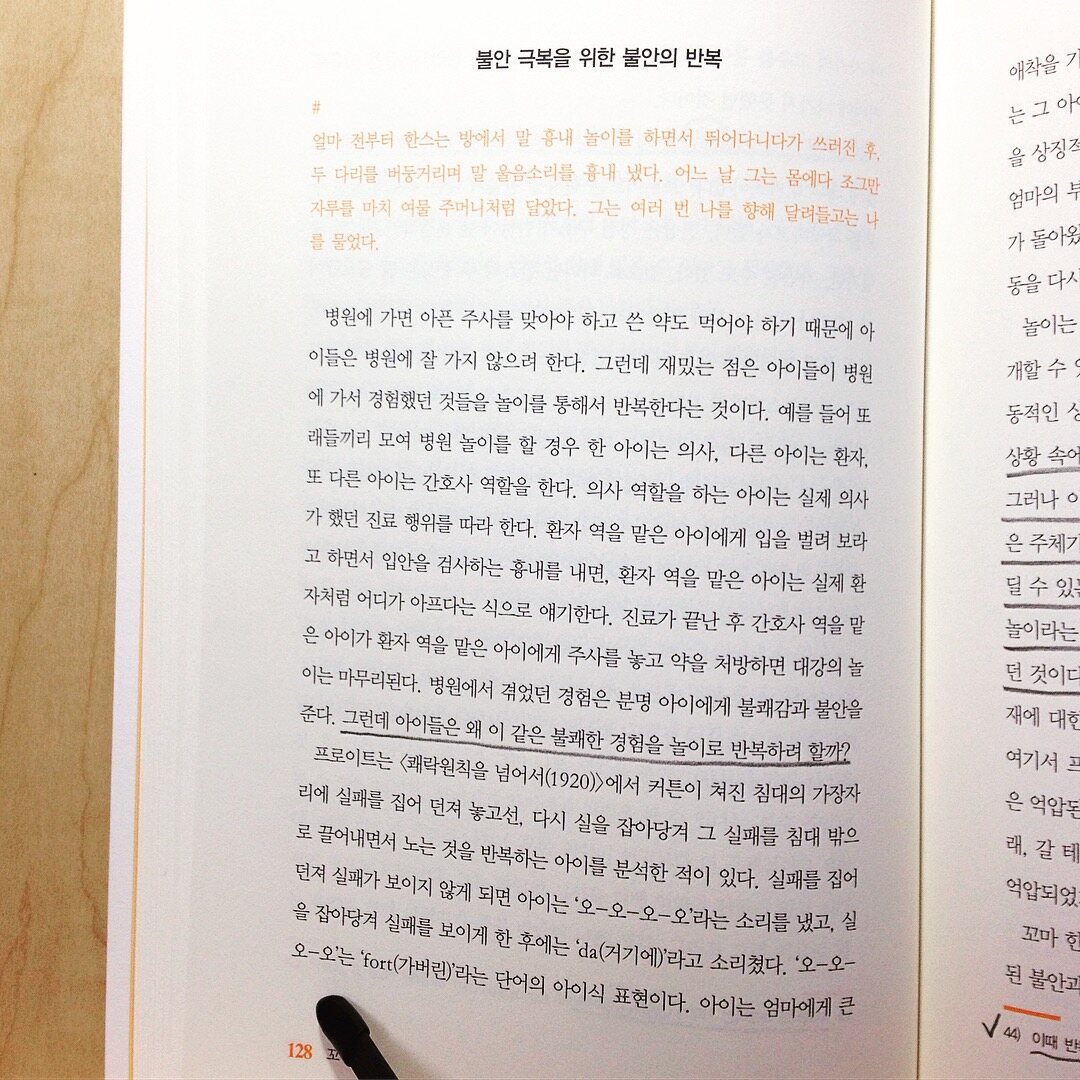 불안 극복을 위한 불안의 반복
#
얼마 전부터 한스는 방에서 말 흉내 놀이를 하면서 뛰어다니다가 쓰러진 후,
두 다리를 버둥거리며 말 울음소리를 흉내 냈다. 어느 날 그는 몸에다 조그만
자루를 마치 여물 주머니처럼 달았다. 그는 여러 번 나를 향해 달려들고는 나
를 물었다.
병원에 가면 아픈 주사를 맞아야 하고 쓴 약도 먹어야 하기 때문에 아
이들은 병원에 잘 가지 않으려 한다. 그런데 재밌는 점은 아이들이 병원
에 가서 경험했던 것들을 놀이를 통해서 반복한다는 것이다. 예를 들어 또
래들끼리 모여 병원 놀이를 할 경우 한 아이는 의사, 다른 아이는 환자,
또 다른 아이는 간호사 역할을 한다. 의사 역할을 하는 아이는 실제 의사
가 했던 진료 행위를 따라 한다. 환자 역을 맡은 아이에게 입을 벌려 보라
고 하면서 입안을 검사하는 흉내를 내면, 환자 역을 맡은 아이는 실제 환
자처럼 어디가 아프다는 식으로 얘기한다. 진료가 끝난 후 간호사 역을 맡
은 아이가 환자 역을 맡은 아이에게 주사를 놓고 약을 처방하면 대강의 놀
이는 마무리된다. 병원에서 겪었던 경험은 분명 아이에게 불쾌감과 불안을
준다. 그런데 아이들은 왜 이 같은 불쾌한 경험을 놀이로 반복하려 할까?
프로이트는 〈쾌락원칙을 넘어서(1920)〉에서 커튼이 쳐진 침대의 가장자
리에 실패를 집어 던져 놓고선, 다시 실을 잡아당겨 그 실패를 침대 밖으
로 끌어내면서 노는 것을 반복하는 아이를 분석한 적이 있다. 실패를 집어
던져 실패가 보이지 않게 되면 아이는 ‘오-오-오-오’라는 소리를 냈고, 실
을 잡아당겨 실패를 보이게 한 후에는 ‘da(거기에)’라고 소리쳤다. ‘오-오-
오-오’는 ‘fort(가버린)’라는 단어의 아이식 표현이다. 아이는 엄마에게 큰
128
애착을
는 그
을 상징적
엄마의
가 돌아왔
동을 다시
놀이는
개할 수
동적인
상황 속에
그러나
은 주체가
딜 수
놀이라는
던 것이다
재에 대한
여기서
은 억압된
래, 갈
억압되었
꼬마
된 불안과
44) 이때